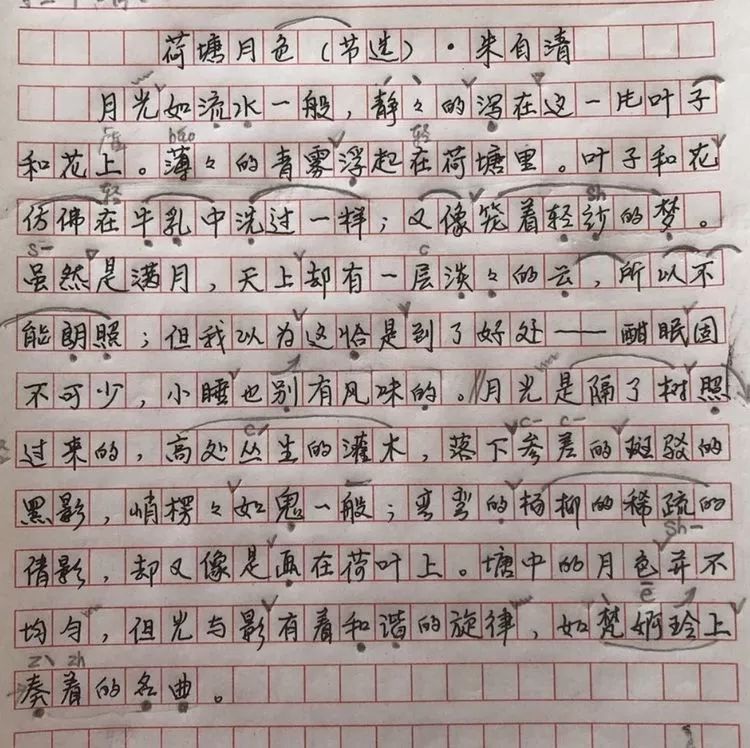 荷塘月色（节选）·朱自清
月光如流水一般，静々的泻在这一片叶子
和花上。薄々的青雾浮起在荷塘里。叶子和花
仿佛在牛乳中洗过一样；又像笼着轻纱的梦。
虽然是满月，天上却有一层淡々的云，所以不
能朗照；但我以为这恰是到了好处——酣眠固
不可少，小睡也别有风味的。月光是隔了树照
过来的，高处丛生的灌木，落下参差的斑驳的
黑影，峭楞々如鬼一般；弯弯的杨柳的稀疏的
倩影，却又像是画在荷叶上。塘中的月色并不
均匀，但光与影有着和谐的旋律，如梵婀玲上
奏着的名曲。